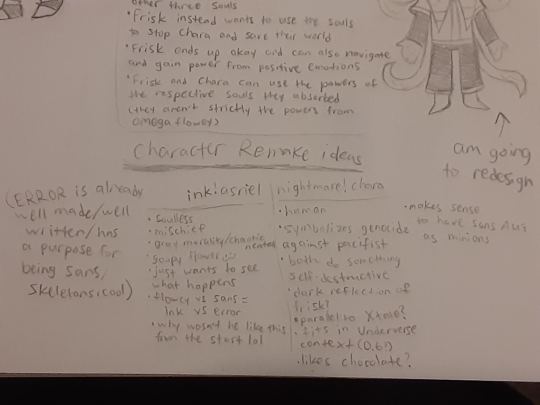 other three souls
• Frisk instead wants to use the souls
to stop Chara and save their world
• Frisk ends up okay and can also navigate
and gain power from positive emotions
• Frisk and Chara can use the powers of
the respective souls they absorbed
(they aren't strictly the powers from
omega flowey)
am going
to redesign
Character Remake ideas
(ERROR is already
well made/well
written/has
a purpose for
being sans/
skeletons/cool)
ink!asriel
• soulless
• mischief
• gray morality/chaotic neutral
• goopy flower
• just wants to see
what happens
• flowey vs sans =
ink vs error
• why wasn't he like this
from the start lol
nightmare!chara
• human
• symbolizes genocide
against pacifist
• both do something
self-destructive
• dark reflection of
frisk?
• parallel to Xtale?
• fits in Underverse
context (0.6!)
• likes chocolate?
• makes sense
to have sans AUs
as minions